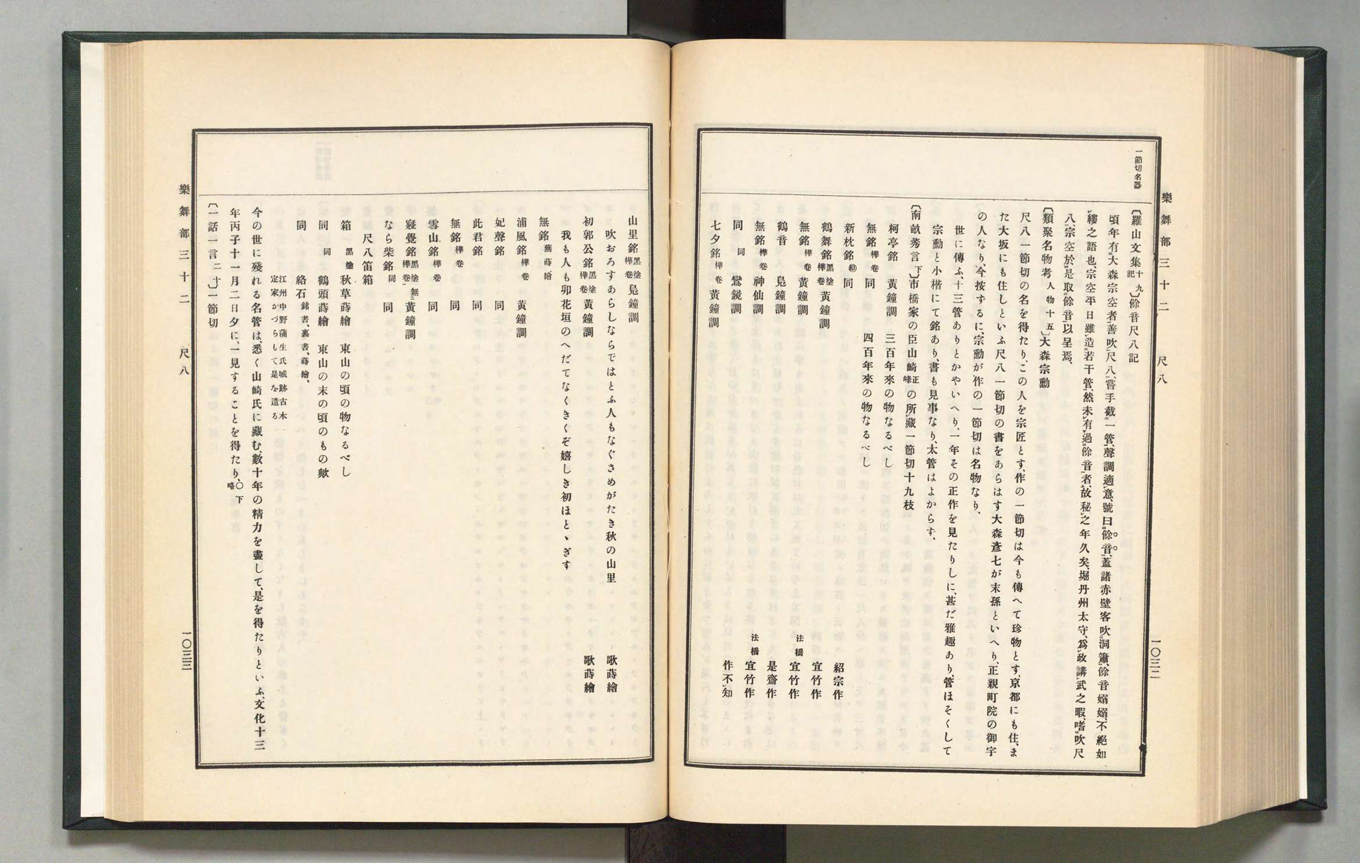 樂舞部三十二 尺八
一〇三二
一節切名器
〔羅山文集十九記〕餘音尺八記
頃年有大森宗空者善吹尺八、嘗手截一管、聲調適意、號曰餘音、蓋諸赤壁客吹洞簫、餘音嫋嫋、不絕如
縷之語也、宗空平日雖造若干管、然未有過餘音者、故秘之年久矣、堀丹州太守、爲政講武之暇、嗜吹尺
八、宗空於是取餘音以呈焉、
〔類聚名物考人物十五〕大森宗勳
尺八一節切の名を得たり、この人を宗匠とす、作の一節切は今も傳へて珍物とす、京都にも住、ま
た大坂にも住しといふ尺八一節切の書をあらはす大森彥七が末孫といへり、正親町院の御宇
の人なり、今按ずるに、宗勳が作の一節切は名物なり、
世に傳ふ、十三管ありとかやいへり、一年その正作を見たりしに、甚だ雅趣あり、管ほそくして
宗勳と小楷にて銘あり、書も見事なり、太管はよからず、
〔南畝莠言下〕市橋家の臣山崎正峰の所藏一節切十九枝
柯亭銘 黃鐘調 三百年來の物なるべし
無銘樺卷 同 四百年來の物なるべし
新枕銘 同 紹宗作
鶴舞銘黑塗樺卷黃鐘調 宜竹作
無銘樺卷黃鐘調 法橋宜竹作
鶴音 鳧鐘調 是齋作
無銘樺卷 神仙調 法橋宜竹作
同 同 鸞鏡調 作不知
七夕銘樺卷黃鐘調
山里銘黑塗樺卷鳧鐘調
吹おろすあらしならではとふ人もなぐさめがたき秋の山里 歌蒔繪
初郭公銘黑塗樺卷黃鐘調 歌蒔繪
我も人も卯花垣のへだてなくきくぞ嬉しき初ほとゝぎす
無銘蕪蒔繪
浦風銘樺卷 黃鐘調
妃聲銘 同
此君銘 同
無銘樺卷 同
雪山銘樺卷 同
寢覺銘黑塗無樺卷黃鐘調
なら柴銘同 同
尺八笛箱
箱黑塗秋草蒔繪 東山の頃の物なるべし
同同 鶴頭蒔繪 東山の末の頃のもの歟
同 絡石銘書、裏書、蒔繪、
江州中野蒲生氏城跡古木
定家かづらもて是を造る
今の世に殘れる名管は悉く山崎氏に藏む、數十年の精力を盡して、是を得たりといふ、文化十三
年丙子十一月二日夕に、一見することを得たり、〇下略
〔一話一言二十〕一節切
樂舞部三十二 尺八
一〇三三